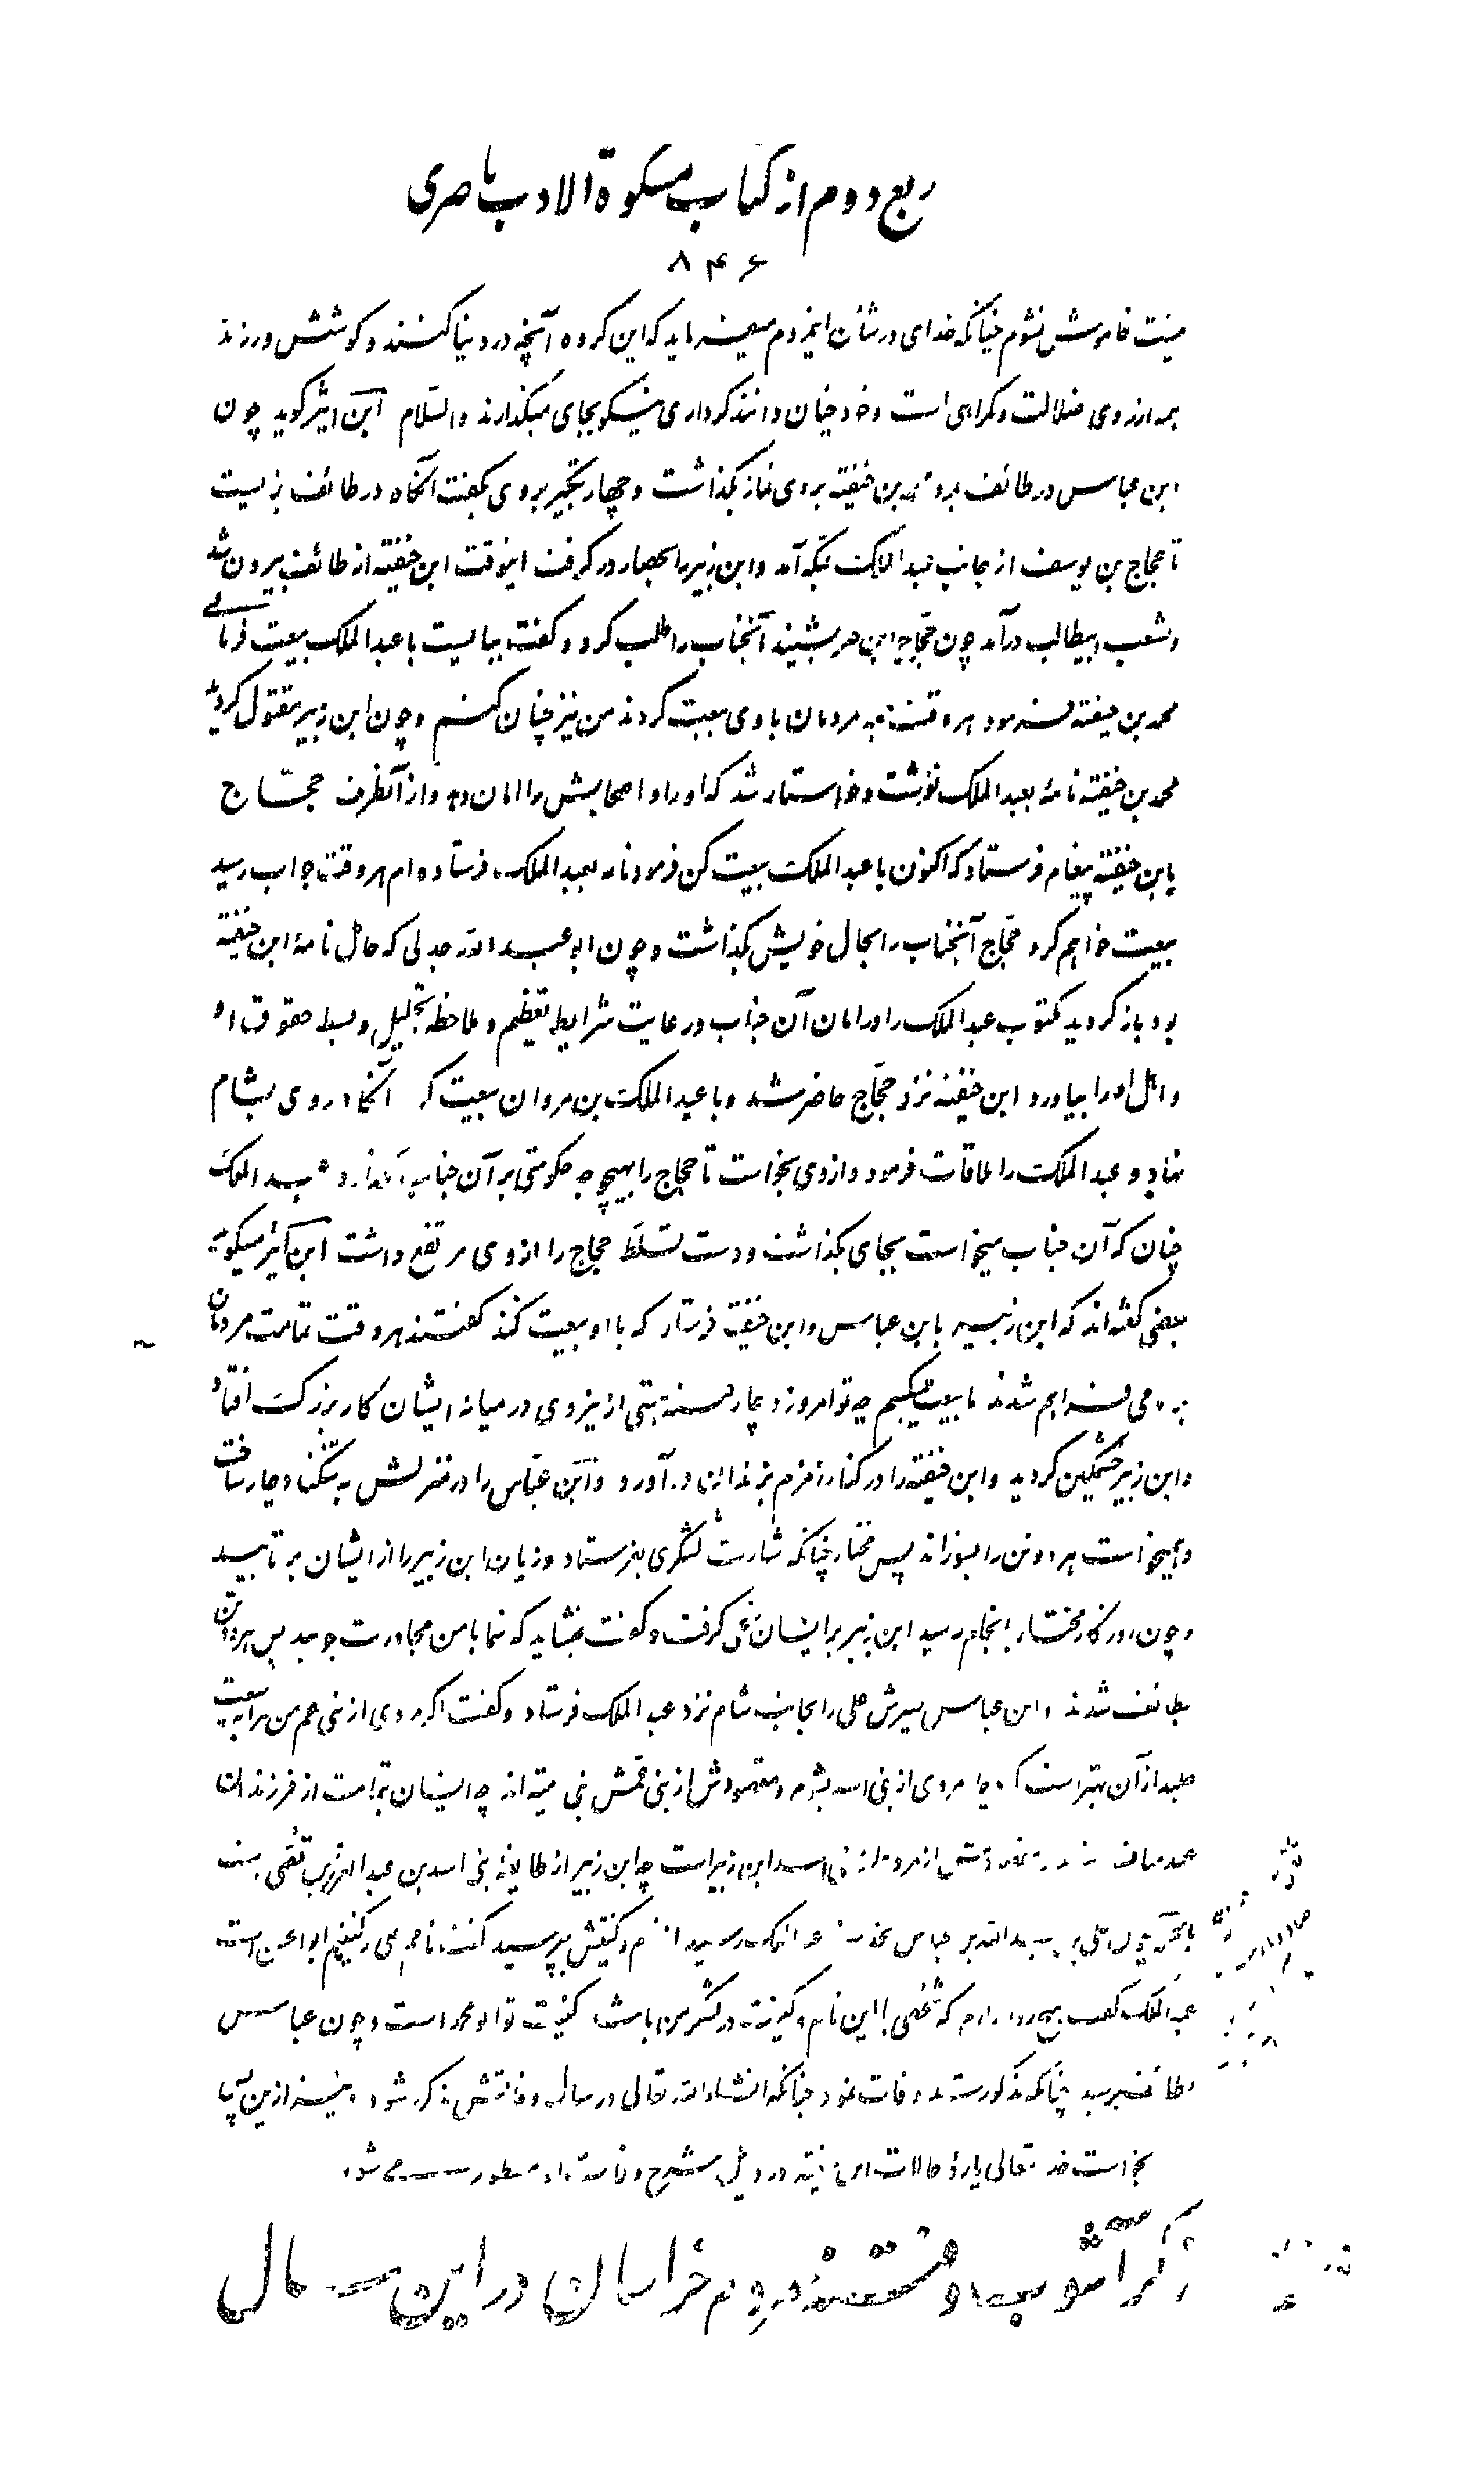 ربع دوم از کتاب مشکوة الادب ناصری
۸۴۶
میت خاموش نشوم چنانکه خدای در شأن این مردم میفرماید که این گروه آنچه در دنیا کنند و کوشش ورزند
همه از روی ضلالت و گمراهی است و خود چنان دانند کرداری نیکو بجای میگذارند والسلام ابن اثیر گوید چون
ابن عباس در طائف بمرد محمد بن حنفیه بر وی نماز بگذاشت و چهار تکبیر بروی بگفت آنگاه در طائف بزیست
تا حجاج بن یوسف از جانب عبد الملک بمکه آمد و ابن زبیر را بحصار در گرفت اینوقت ابن حنفیه از طائف بیرون شد
و بشعب ابیطالب درآمد چون حجاج این خبر بشنید آنجناب را طلب کرد و گفت بیایست با عبد الملک بیعت فرمائی
محمد بن حنفیه فرمود هر وقت همه مردمان با وی بیعت کردند من نیز چنان کنم و چون ابن زبیر مقتول گردید
محمد بن حنفیه نامهٔ بعبد الملک نوشت و خواستار شد که او را و اصحابش را امان دهد و از آنطرف حجّاج
بابن حنفیه پیغام فرستاد که اکنون با عبد الملک بیعت کن فرمود نامه بعبد الملک فرستاده‌ام هر وقت جواب رسید
بیعت خواهم کرد حجاج آنجناب را بحال خویش بگذاشت و چون ابو عبد الله جدلی که حامل نامهٔ ابن حنفیه
بود باز گردید مکتوب عبد الملک را در امان آن جناب و رعایت شرایط تعظیم و ملاحظه تجلیل و بسط حقوق او
و اهل او را بیاورد ابن حنفیه نزد حجّاج حاضر شد و با عبد الملک بن مروان بیعت کرد آنگاه روی بشام
نهاد و عبد الملک را ملاقات فرمود و از وی بخواست تا حجاج را بهیچوجه حکومتی بر آن جناب نگذارد عبد الملک
چنان که آن جناب میخواست بجای بگذاشت و دست تسلط حجاج را از وی مرتفع داشت ابن اثیر میگوید
بعضی گفته‌اند که ابن زبیر بابن عباس و ابن حنفیه فرستاد که با او بیعت کنند گفتند هر وقت تمامت مردمان
بر امامی فراهم شدند ما بیعت میکنیم چه تو امروز دچار فتنه هستی ازینروی در میانه ایشان کار بزرگ افتاد
و ابن زبیر خشمگین گردید و ابن حنفیه را در کنار زمزم بزندان در آورد و ابن عباس را در منزلش به تنگنا دچار ساخت
و همیخواست هر دو تن را بسوزاند پس مختار چنانکه اشارت شد لشگری بفرستاد و زیان ابن زبیر را از ایشان برتابید
و چون روزگار مختار بانجام رسید ابن زبیر بر ایشان گرفت و گفت نشاید که شما با من مجاورت جوئید پس هردوتن
بطائف شدند و ابن عباس پسرش علی را بجانب شام نزد عبد الملک فرستاد و گفت اگر مردی از بنی عم من مرا به بیعت
طلبد از آن بهتر است که مردی از بنی اسد و مقصودش از بنی عمش بنی امیه‌اند چه ایشان بتمامت از فرزندان
عبد مناف و مقصودش از مردی از بنی اسد ابن زبیر است چه ابن زبیر از طایفه بنی اسد بن عبد العزی بن قصی است
بالجمله چون علی بن عبد الله بن عباس بخدمت عبد الملک رسید از نام و کنیتش بپرسید گفت نامم علی و کنیتم ابو الحسن است
عبد الملک گفت هیچ روا ندارم که شخصی با این نام و کنیت در لشگر من باشد کنیت تو ابو محمد است و چون عباس
بطائف رسید چنانکه مذکور شد وفات نمود چنانکه انشاء الله تعالی در سال وفاتش مذکور شود و نیز ازین پس
بخواست خدا تعالی پارهٔ حالات ابن حنفیه در ذیل شرح وفات او مسطور می شود
ذکر آشوب و فتنه مردم خراسان در این سال